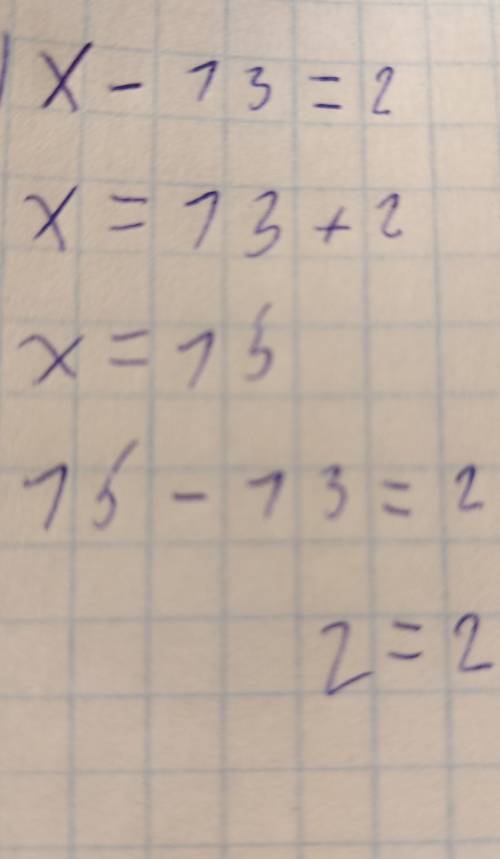 x - 13 = 2
x = 13 + 2
x = 15
15 - 13 = 2
2 = 2